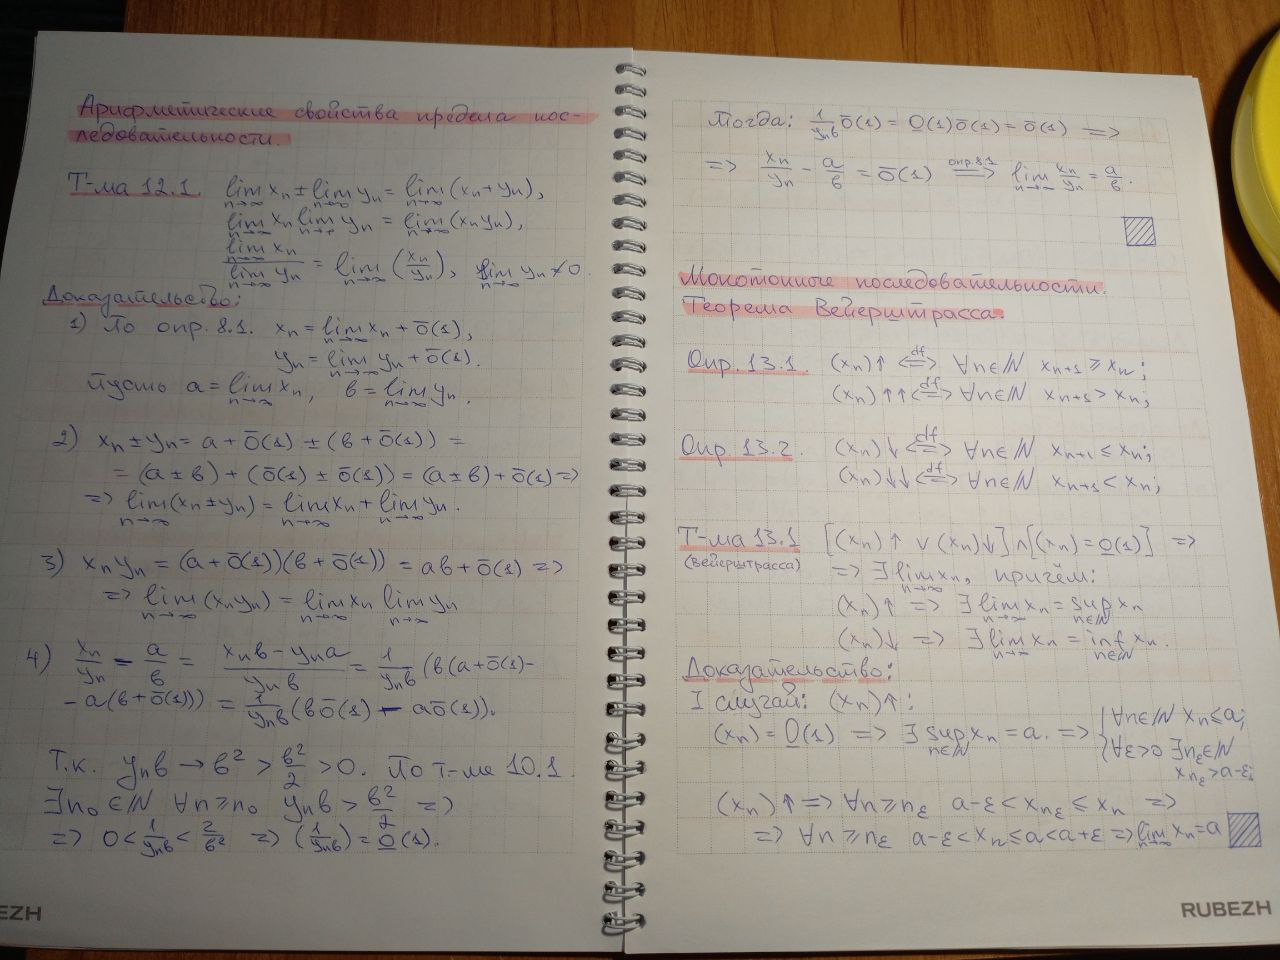 Арифметические свойства предела пос-
ледовательности.
Т-ма 12.1. lim_{n→∞} xₙ ± lim_{n→∞} yₙ = lim_{n→∞} (xₙ + yₙ),
lim_{n→∞} xₙ lim_{n→∞} yₙ = lim_{n→∞} (xₙyₙ),
lim_{n→∞} xₙ / lim_{n→∞} yₙ = lim_{n→∞} (xₙ/yₙ), lim_{n→∞} yₙ ≠ 0.
Доказательство:
1) По опр. 8.1. xₙ = lim_{n→∞} xₙ + o̅(1),
yₙ = lim_{n→∞} yₙ + o̅(1).
Пусть a = lim_{n→∞} xₙ, b = lim_{n→∞} yₙ.
2) xₙ ± yₙ = a + o̅(1) ± (b + o̅(1)) =
= (a ± b) + (o̅(1) ± o̅(1)) = (a ± b) + o̅(1) =>
=> lim_{n→∞} (xₙ ± yₙ) = lim_{n→∞} xₙ + lim_{n→∞} yₙ.
3) xₙyₙ = (a + o̅(1))(b + o̅(1)) = ab + o̅(1) =>
=> lim_{n→∞} (xₙyₙ) = lim_{n→∞} xₙ lim_{n→∞} yₙ
4) xₙ/yₙ - a/b = (xₙb - yₙa)/(yₙb) = 1/(yₙb) (b(a + o̅(1) -
- a(b + o̅(1))) = 1/(yₙb) (b o̅(1) - a o̅(1)).
Т.к. yₙb → b² > b²/2 > 0. По т-ме 10.1
∃n₀ ∈ ℕ ∀n ⩾ n₀ yₙb > b²/2 =>
=> 0 < 1/(yₙb) < 2/b² => (1/(yₙb)) = O̲(1).
EZH
Тогда: 1/(yₙb) o̅(1) = O̲(1) o̅(1) = o̅(1) =>
=> xₙ/yₙ - a/b = o̅(1) =опр.8.1=> lim_{n→∞} xₙ/yₙ = a/b.
Монотонные последовательности.
Теорема Вейерштрасса.
Опр. 13.1. (xₙ)↑ <=df=> ∀n∈ℕ xₙ₊₁ ⩾ xₙ;
(xₙ)↑↑ <=df=> ∀n∈ℕ xₙ₊₁ > xₙ;
Опр. 13.2. (xₙ)↓ <=df=> ∀n∈ℕ xₙ₊₁ ≤ xₙ;
(xₙ)↓↓ <=df=> ∀n∈ℕ xₙ₊₁ < xₙ;
Т-ма 13.1 [(xₙ)↑ ∨ (xₙ)↓] ∧ [(xₙ) = O̲(1)] =>
(Вейерштрасса) => ∃ lim_{n→∞} xₙ, причём:
(xₙ)↑ => ∃ lim_{n→∞} xₙ = sup_{n∈ℕ} xₙ
(xₙ)↓ => ∃ lim_{n→∞} xₙ = inf_{n∈ℕ} xₙ.
Доказательство:
I случай: (xₙ)↑:
(xₙ) = O̲(1) => ∃ sup_{n∈ℕ} xₙ = a. => { ∀n∈ℕ xₙ ≤ a;
∀ε>0 ∃n_ε∈ℕ
x_{n_ε} > a-ε;
(xₙ)↑ => ∀n ⩾ n_ε a-ε < x_{n_ε} ≤ xₙ =>
=> ∀n ⩾ n_ε a-ε < xₙ ≤ a < a+ε => lim_{n→∞} xₙ = a
RUBEZH